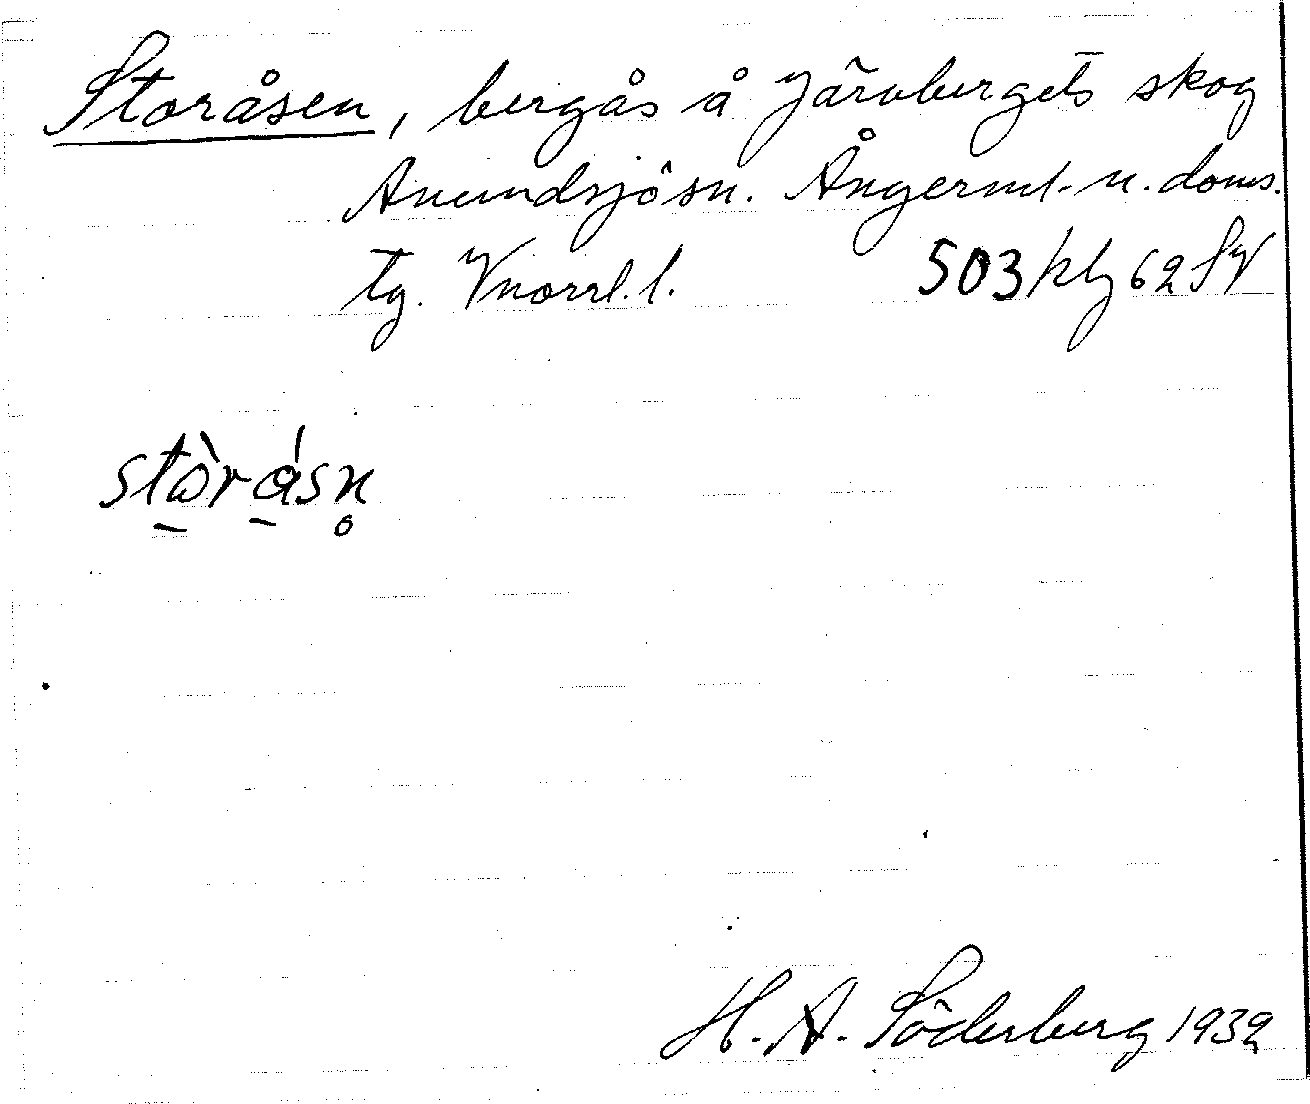 Storåsen, bergås å Järvbergets skog
Anundsjö sn. Ångerml. n. doms.
tg. Vnorrl. l. 503 klj 62 SV
stòrásn̥
H. A. Söderberg 1932